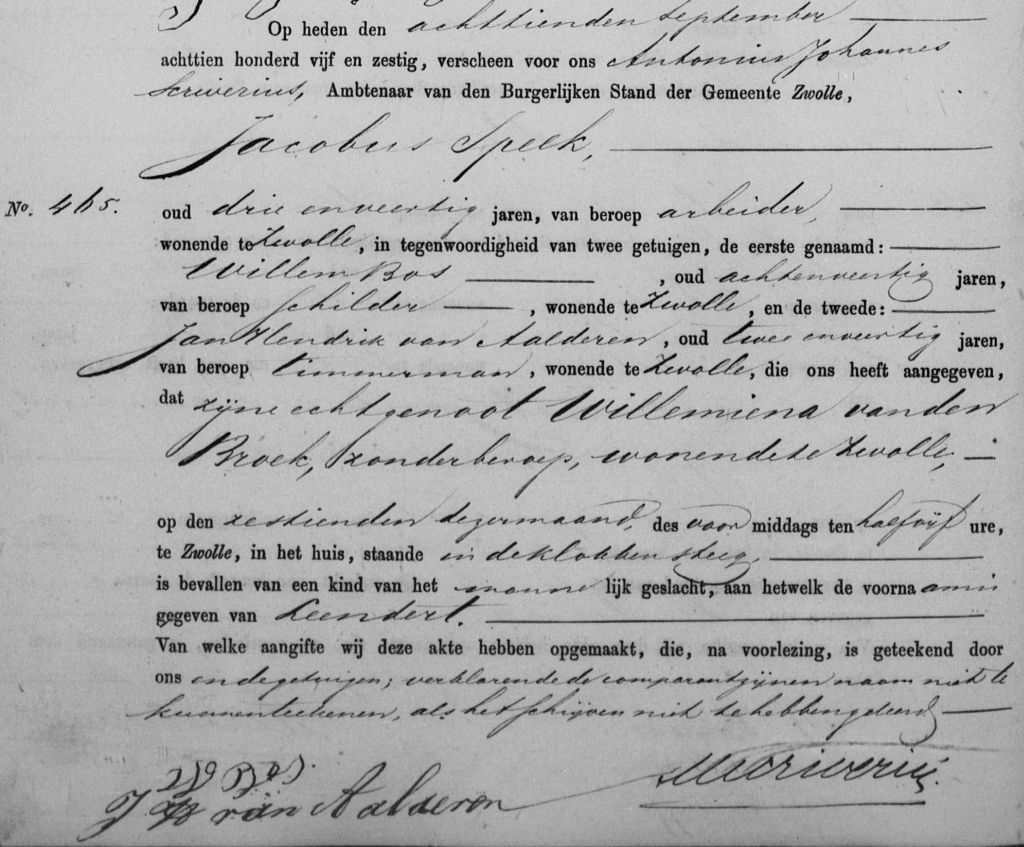 Op heden den achttienden September
achttien honderd vijf en zestig, verscheen voor ons Antonius Johannes
Scriverius, Ambtenaar van den Burgerlijken Stand der Gemeente Zwolle,
Jacobus Speek,
No. 465. oud drie en veertig jaren, van beroep arbeider,
wonende te Zwolle, in tegenwoordigheid van twee getuigen, de eerste genaamd:
Willem Bos, oud acht en veertig jaren,
van beroep schilder, wonende te Zwolle, en de tweede:
Jan Hendrik van Aalderen, oud twee en veertig jaren,
van beroep timmerman, wonende te Zwolle, die ons heeft aangegeven,
dat zijne echtgenoot Willemiena van den
Broek, zonder beroep, wonende te Zwolle,
op den zestienden dezer maand, des voor middags ten half vijf ure,
te Zwolle, in het huis, staande in de klokkensteeg,
is bevallen van een kind van het manne lijk geslacht, aan hetwelk de voorna am is
gegeven van Leendert.
Van welke aangifte wij deze akte hebben opgemaakt, die, na voorlezing, is geteekend door
ons en de getuigen; verklarende de comparant zijnen naam niet te
kunnen teekenen, als het schrijven niet te hebben geleerd
W Bos.
J H van Aalderen Scriverius.